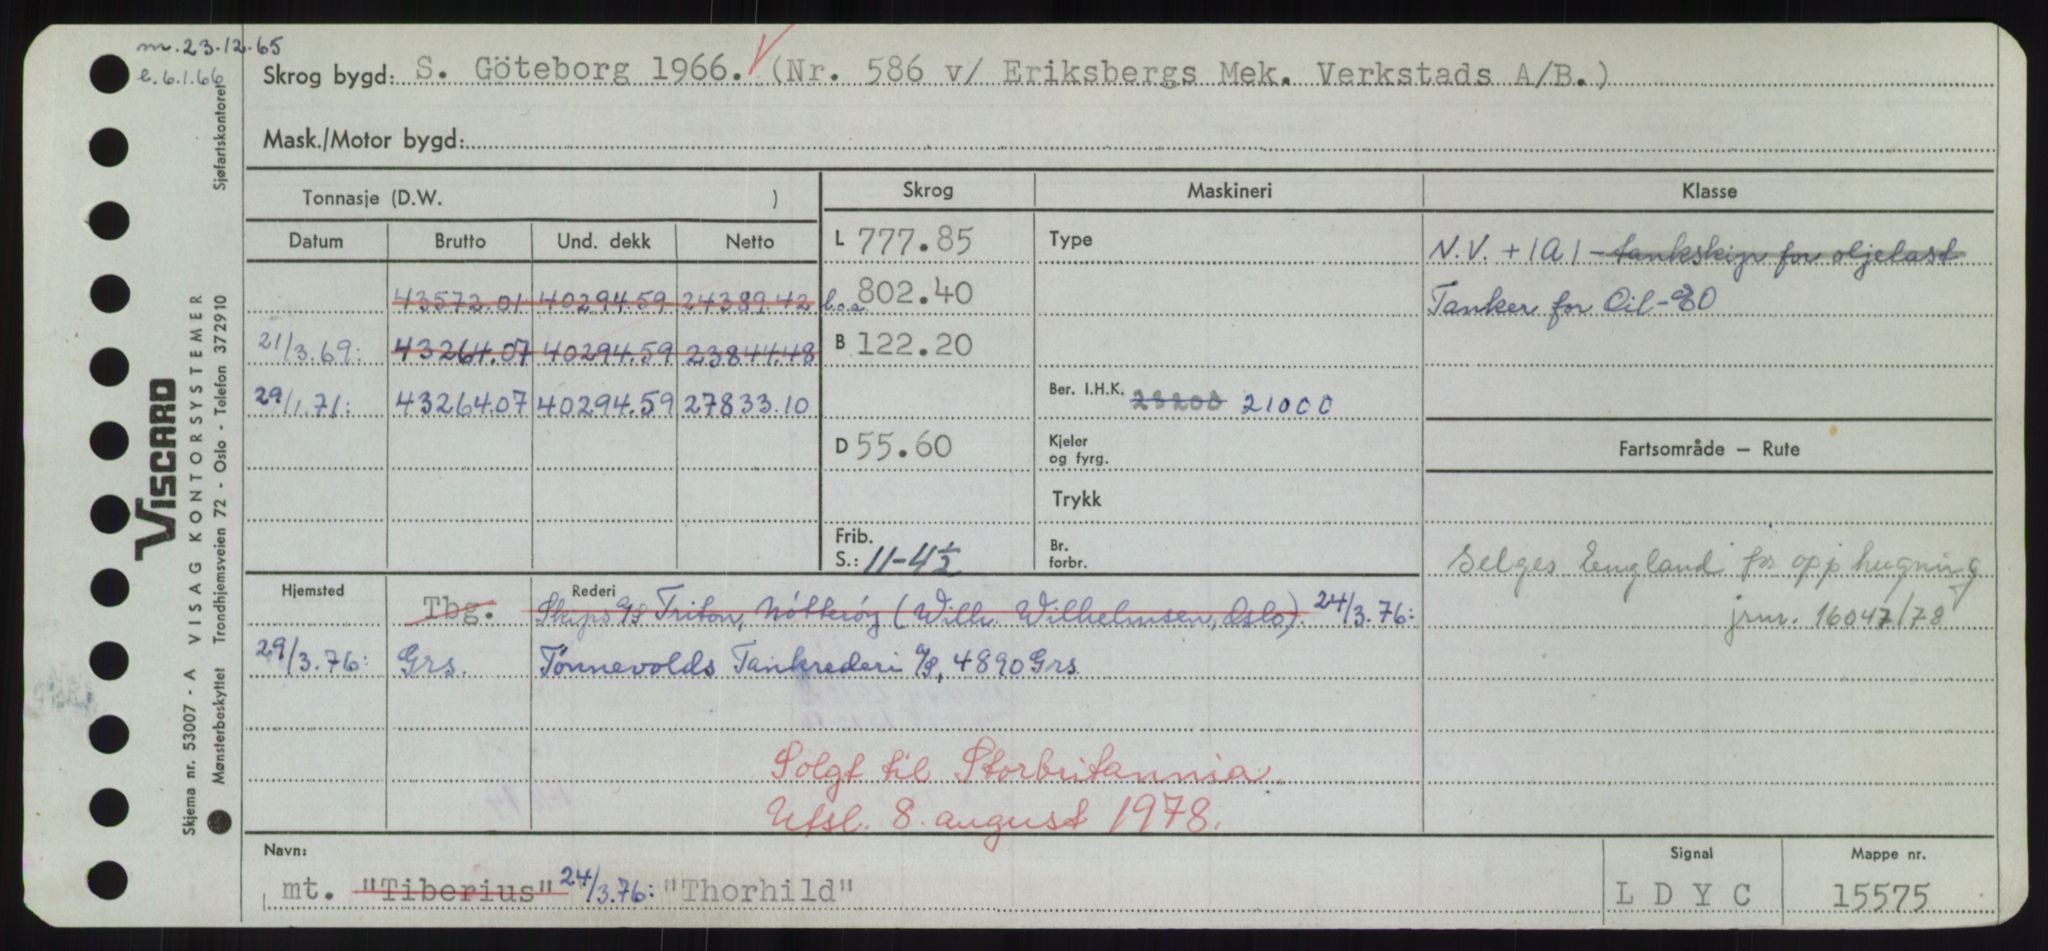 m. 23.12.65
e. 6.1.66
Skrog bygd: S. Göteborg 1966. (Nr. 586 v/ Eriksbergs Mek. Verkstads A/B.)
Mask./Motor bygd:
Tonnasje (D.W. )
Skrog Maskineri Klasse
Datum Brutto Und. dekk Netto
L 777.85 Type N.V. +1A1 - tankskip for oljelast
43572.01 40294.59 24389.42 l.o.a. 802.40 Tanker for Oil - EO
21/3.69: 43264.07 40294.59 23844.48 B 122.20
29/1.71: 43264.07 40294.59 27833.10 Ber. I.H.K. 23200 21000
D 55.60 Kjeler og fyrg. Fartsområde — Rute
Trykk
Frib.
S.: 11-4½ Br. forbr.
Selges England for opphugning
jrnr. 16047/78
Hjemsted Rederi
Tbg. Skips A/S Triton, Nötteröy (Wilh. Wilhelmsen, Oslo). 24/3.76:
29/3.76: Grs. Tønnevolds Tankrederi A/S, 4890 Grs
Solgt til Storbritannia
Utsl. 8. august 1978.
Navn: Signal Mappe nr.
mt. "Tiberius" 24/3.76: "Thorhild" L D Y C 15575
Skjema nr. 53007 - A VISAG KONTORSYSTEMER
VISCARD
Mønsterbeskyttet Trondhjemsveien 72 - Oslo - Telefon 372910 Sjøfartskontoret